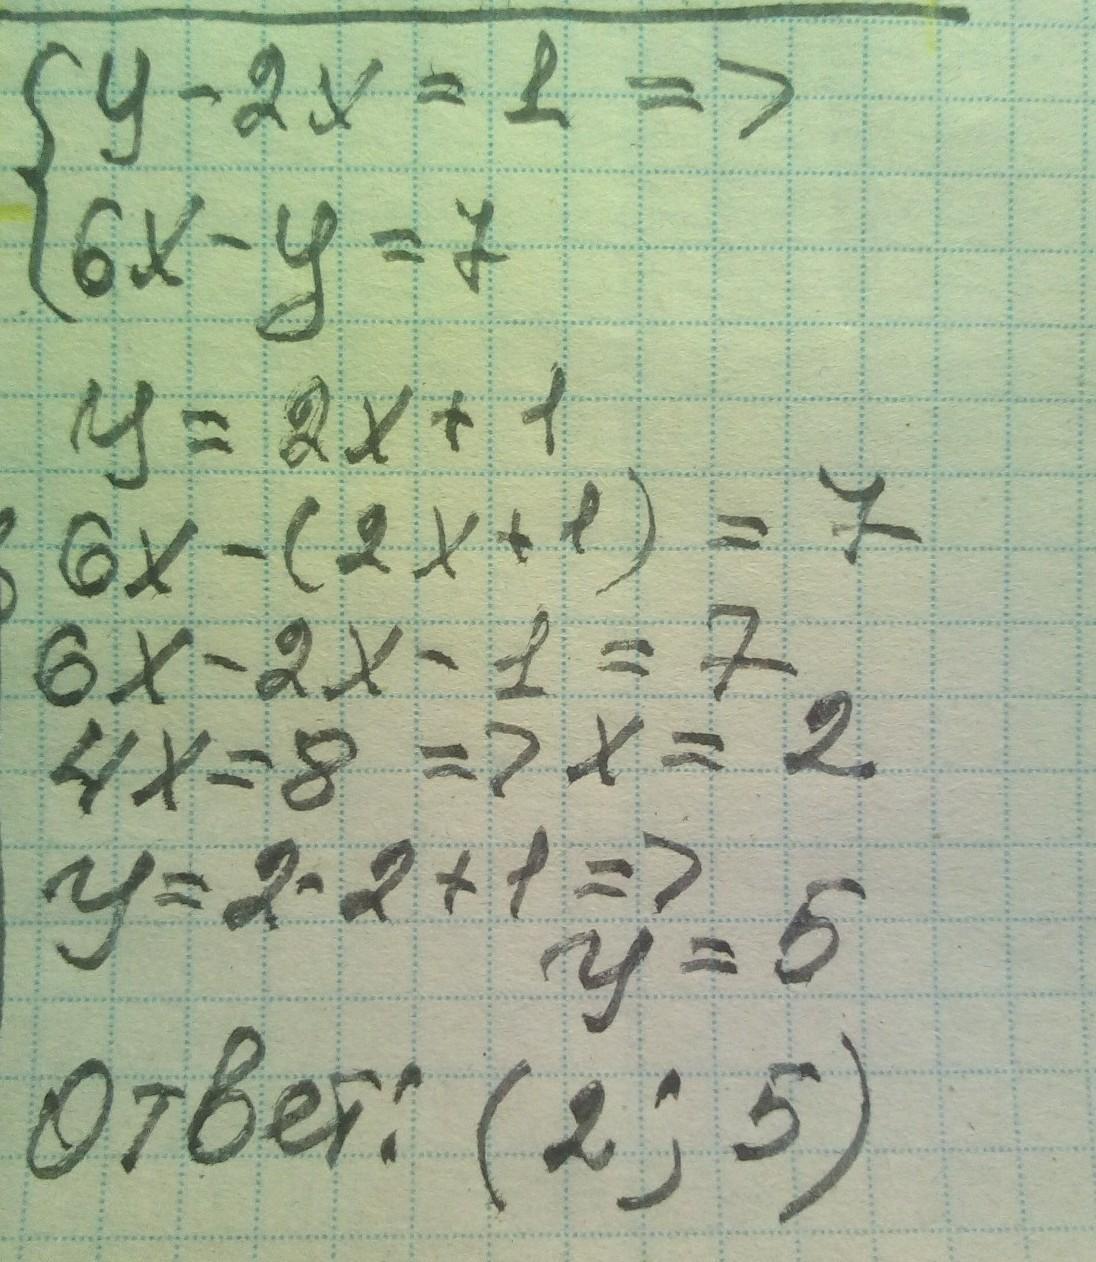 y - 2x = 1 =>
6x - y = 7
y = 2x + 1
6x - (2x + 1) = 7
6x - 2x - 1 = 7
4x = 8 => x = 2
y = 2 · 2 + 1 =>
y = 5
Ответ: (2; 5)